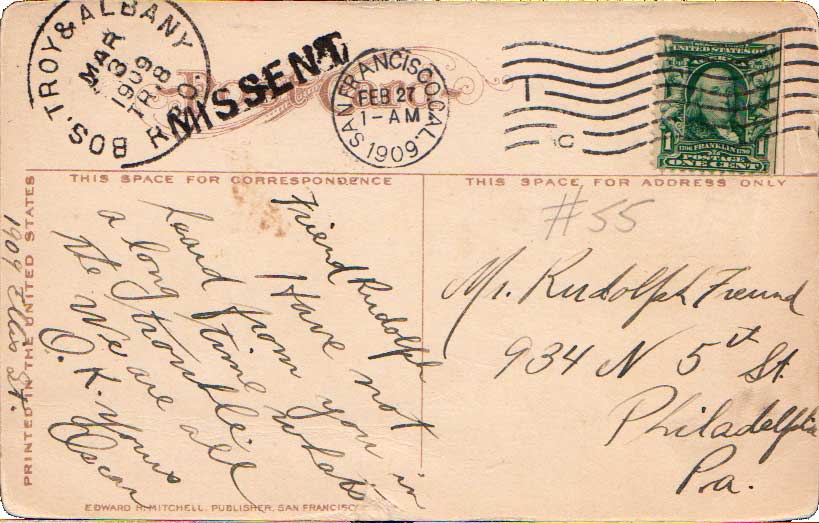 BOS, TROY & ALBANY
MAR
8
1909
TR 18
R.P.O.
MISSENT
Post Card
SAN FRANCISCO, CAL.
FEB 27
1-AM
1909
C
UNITED STATES OF
1706 FRANKLIN 1790
1 1
POSTAGE
ONE CENT
THIS SPACE FOR CORRESPONDENCE
THIS SPACE FOR ADDRESS ONLY
PRINTED IN THE UNITED STATES
1909 St.
Friend Rudolph
Have not
heard from you in
a long time whats
the trouble
We are all
O.K. yours
Oscar
#55
Mr. Rudolph Freund
934 N 5th St.
Philadelphia
Pa.
EDWARD H. MITCHELL, PUBLISHER, SAN FRANCISCO